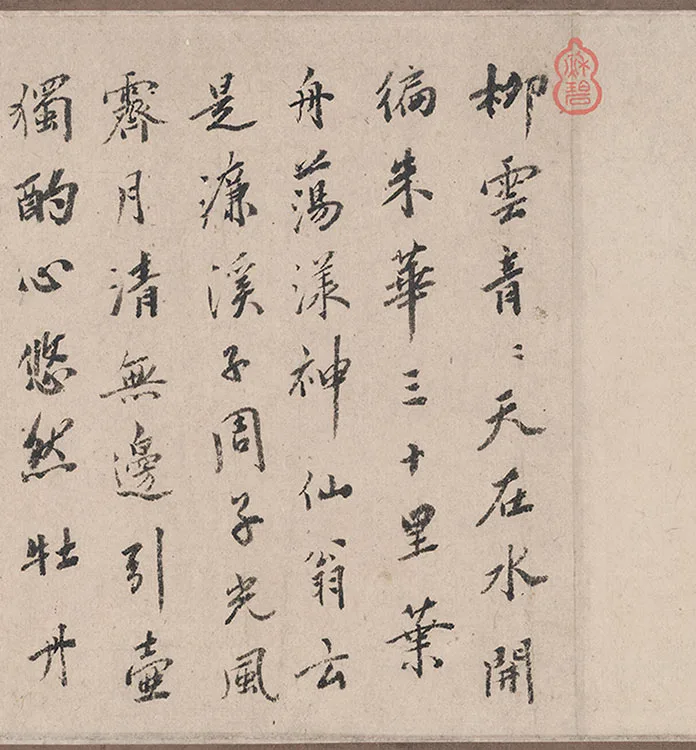 柳雲青〻天在水開
徧朱華三十里葉
舟蕩漾神仙翁云
是濂溪子周子光風
霽月清無邊引壺
獨酌心悠然牡丹
秋碧